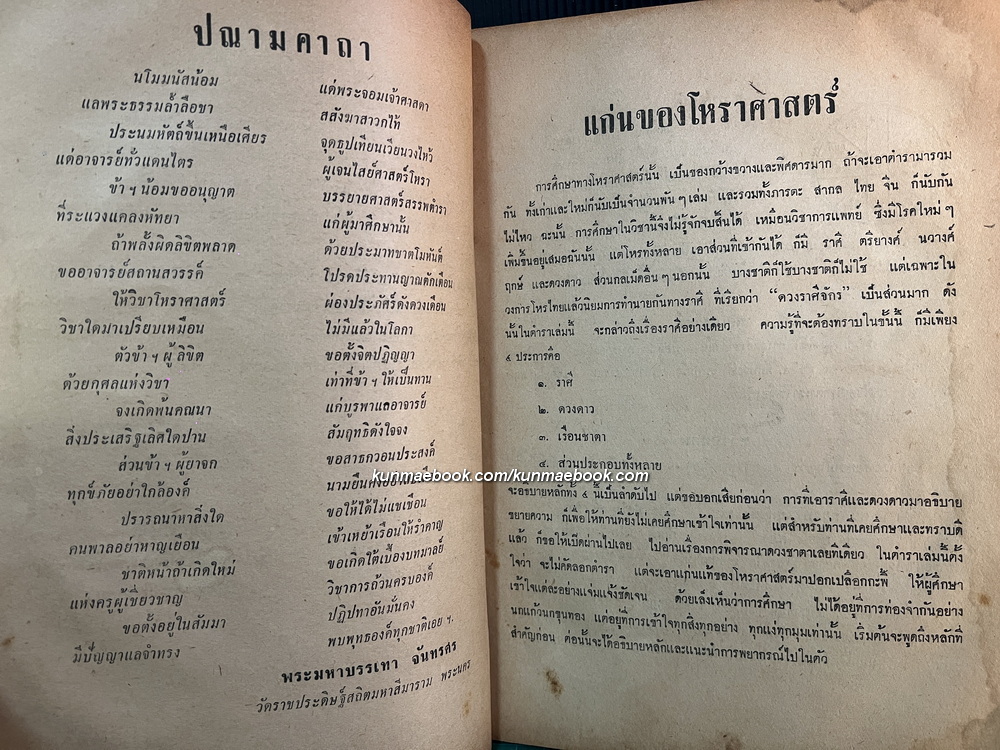 ปณามคาถา
นโมมนัสน้อม แด่พระจอมเจ้าศาสดา
แลพระธรรมล้ำลือชา สสังฆาสาวกไท้
ประนมหัตถ์ขึ้นเหนือเศียร จุดธูปเทียนเวียนวงไหว้
แด่อาจารย์ทั่วแดนไตร ผู้เจนไสย์ศาสตร์โหรา
ข้า ฯ น้อมขออนุญาต บรรยายศาสตร์สรรพตำรา
ที่ระแวงแคลงหัทยา แก่ผู้มาศึกษานั้น
ถ้าพลั้งผิดลิขิตพลาด ด้วยประมาทขาดโมหันต์
ขออาจารย์สถานสวรรค์ โปรดประทานญาณดักเตือน
ให้วิชาโหราศาสตร์ ผ่องประภัศร์ดังดวงเดือน
วิชาใดมาเปรียบเหมือน ไม่มีแล้วในโลกา
ตัวข้า ฯ ผู้ลิขิต ขอตั้งจิตปฏิญญา
ด้วยกุศลแห่งวิชา เท่าที่ข้า ฯ ให้เป็นทาน
จงเกิดพ้นคณนา แก่บูรพาแลอาจารย์
สิ่งประเสริฐเลิศใดปาน สัมฤทธิดังใจจง
ส่วนข้า ฯ ผู้ยาจก ขอสาธกวอนประสงค์
ทุกข์ภัยอย่าใกล้องค์ นามยืนคง
ปรารถนาหาสิ่งใด ขอให้ได้ไม่แชเชือน
คนพาลอย่าหาญเยือน เข้าเหย้าเรือนให้รำคาญ
ชาติหน้าถ้าเกิดใหม่ ขอเกิดใต้เบื้องบทมาลย์
แห่งครูผู้เชี่ยวชาญ วิชาการถ้วนครบองค์
ขอตั้งอยู่ในสัมมา ปฏิปทาอันมั่นคง
มีปัญญาแลจำทรง พบพุทธองค์ทุกชาติเอย ฯ
พระมหาบรรเทา จันทรศร
วัดราชประดิษฐ์สถิตมหาสีมาราม พระนคร
แก่นของโหราศาสตร์
การศึกษาทางโหราศาสตร์นั้น เป็นของกว้างขวางและพิศดารมาก ถ้าจะเอาตำรามารวม
กัน ทั้งเก่าและใหม่ก็นับเป็นจำนวนพัน ๆ เล่ม และรวมทั้งภารตะ สากล ไทย จีน ก็นับกัน
ไม่ไหว ฉะนั้น การศึกษาในวิชานี้จึงไม่รู้จักจบสิ้นได้ เหมือนวิชาการแพทย์ ซึ่งมีโรคใหม่ ๆ
เพิ่มขึ้นอยู่เสมอฉันนั้น แต่โหรทั้งหลาย เอาส่วนที่เข้ากันได้ ก็มี ราศี ตรียางศ์ นวางศ์
ฤกษ์ และดวงดาว ส่วนกลเม็ดอื่น ๆ นอกนั้น บางชาติก็ใช้บางชาติก็ไม่ใช้ แต่เฉพาะใน
วงการโหรไทยแล้วนิยมการทำนายกันทางราศี ที่เรียกว่า “ดวงราศีจักร” เป็นส่วนมาก ดัง
นั้นในตำราเล่มนี้ จะกล่าวถึงเรื่องราศีอย่างเดียว ความรู้ที่จะต้องทราบในขั้นนี้ ก็มีเพียง
๔ ประการคือ
๑. ราศี
๒. ดวงดาว
๓. เรือนชาตา
๔. ส่วนประกอบทั้งหลาย
kunmaebook.com/kunmaebook.com
จะอธิบายหลักทั้ง ๔ นี้เป็นลำดับไป แต่ขอบอกเสียก่อนว่า การที่เอาราศีและดวงดาวมาอธิบาย
ขยายความ ก็เพื่อให้ท่านที่ยังไม่เคยศึกษาเข้าใจเท่านั้น แต่สำหรับท่านที่เคยศึกษาและทราบดี
แล้ว ก็ขอให้เปิดผ่านไปเลย ไปอ่านเรื่องการพิจารณาดวงชาตาเลยทีเดียว ในตำราเล่มนี้ตั้ง
ใจว่า จะไม่คัดลอกตำรา แต่จะเอาแก่นแท้ของโหราศาสตร์มาปอกเปลือกกะพี้ ให้ผู้ศึกษา
เข้าใจแต่ละอย่างแจ่มแจ้งชัดเจน ด้วยเล็งเห็นว่าการศึกษา ไม่ได้อยู่ที่การท่องจำกันอย่าง
นกแก้วนกขุนทอง แต่อยู่ที่การเข้าใจทุกสิ่งทุกอย่าง ทุกแง่ทุกมุมเท่านั้น เริ่มต้นจะพูดถึงหลักที่
สำคัญก่อน ต่อนั้นจะได้อธิบายหลักและแนะนำการพยากรณ์ไปในตัว